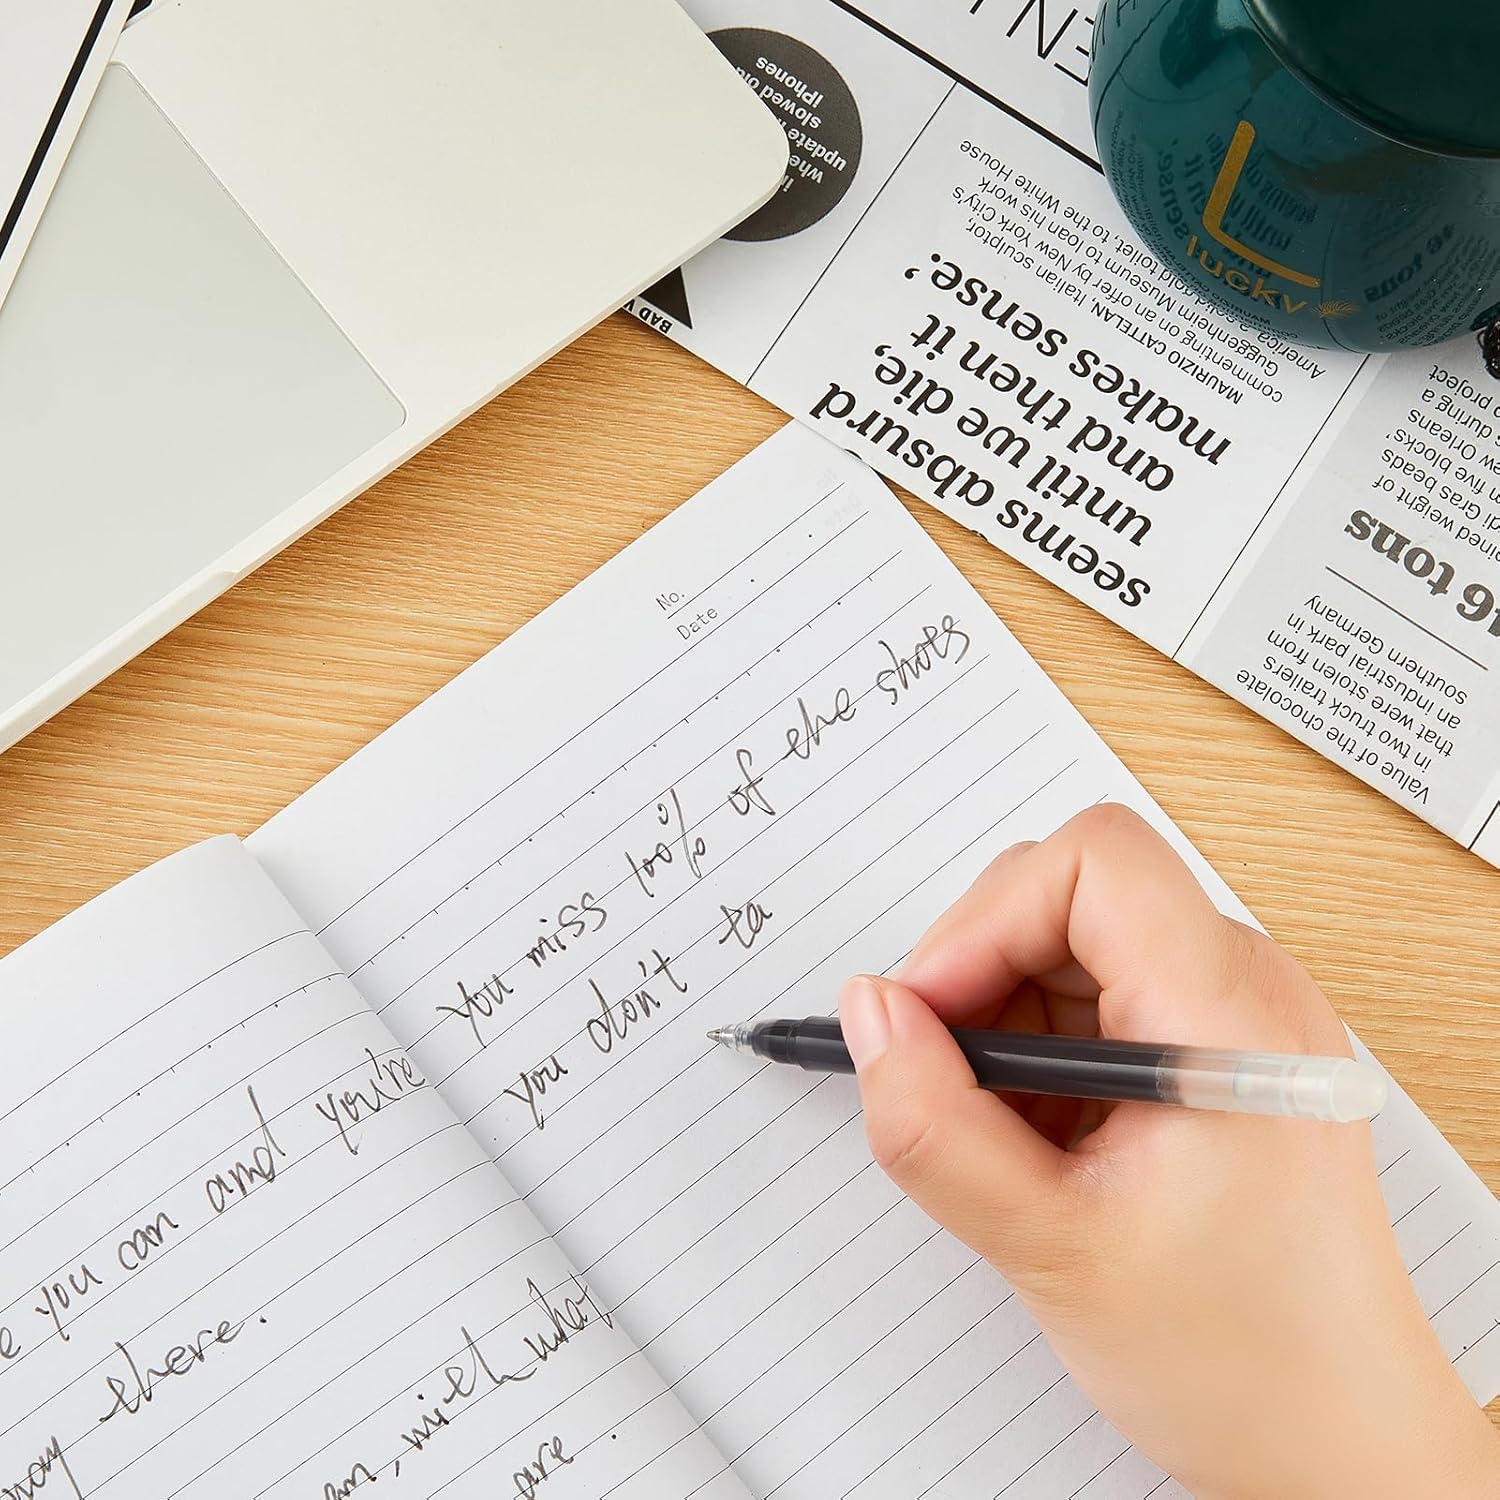 e you can and you're
way there.
en, with what
are.
No.
Date
You miss 100% of the shots
you don't ta
update
slowed old
iPhones
BAD
EN
seems absurd
until we die,
and then it
makes sense.’
MAURIZIO CATTELAN, Italian sculptor,
commenting on an offer by New York City's
Guggenheim Museum to loan his work
America, a solid gold toilet, to the White House
Value of the chocolate
in two truck trailers
that were stolen from
an industrial park in
southern Germany
16 tons
weight of
Gras beads
five blocks'
Orleans
during a
project
L
lucky